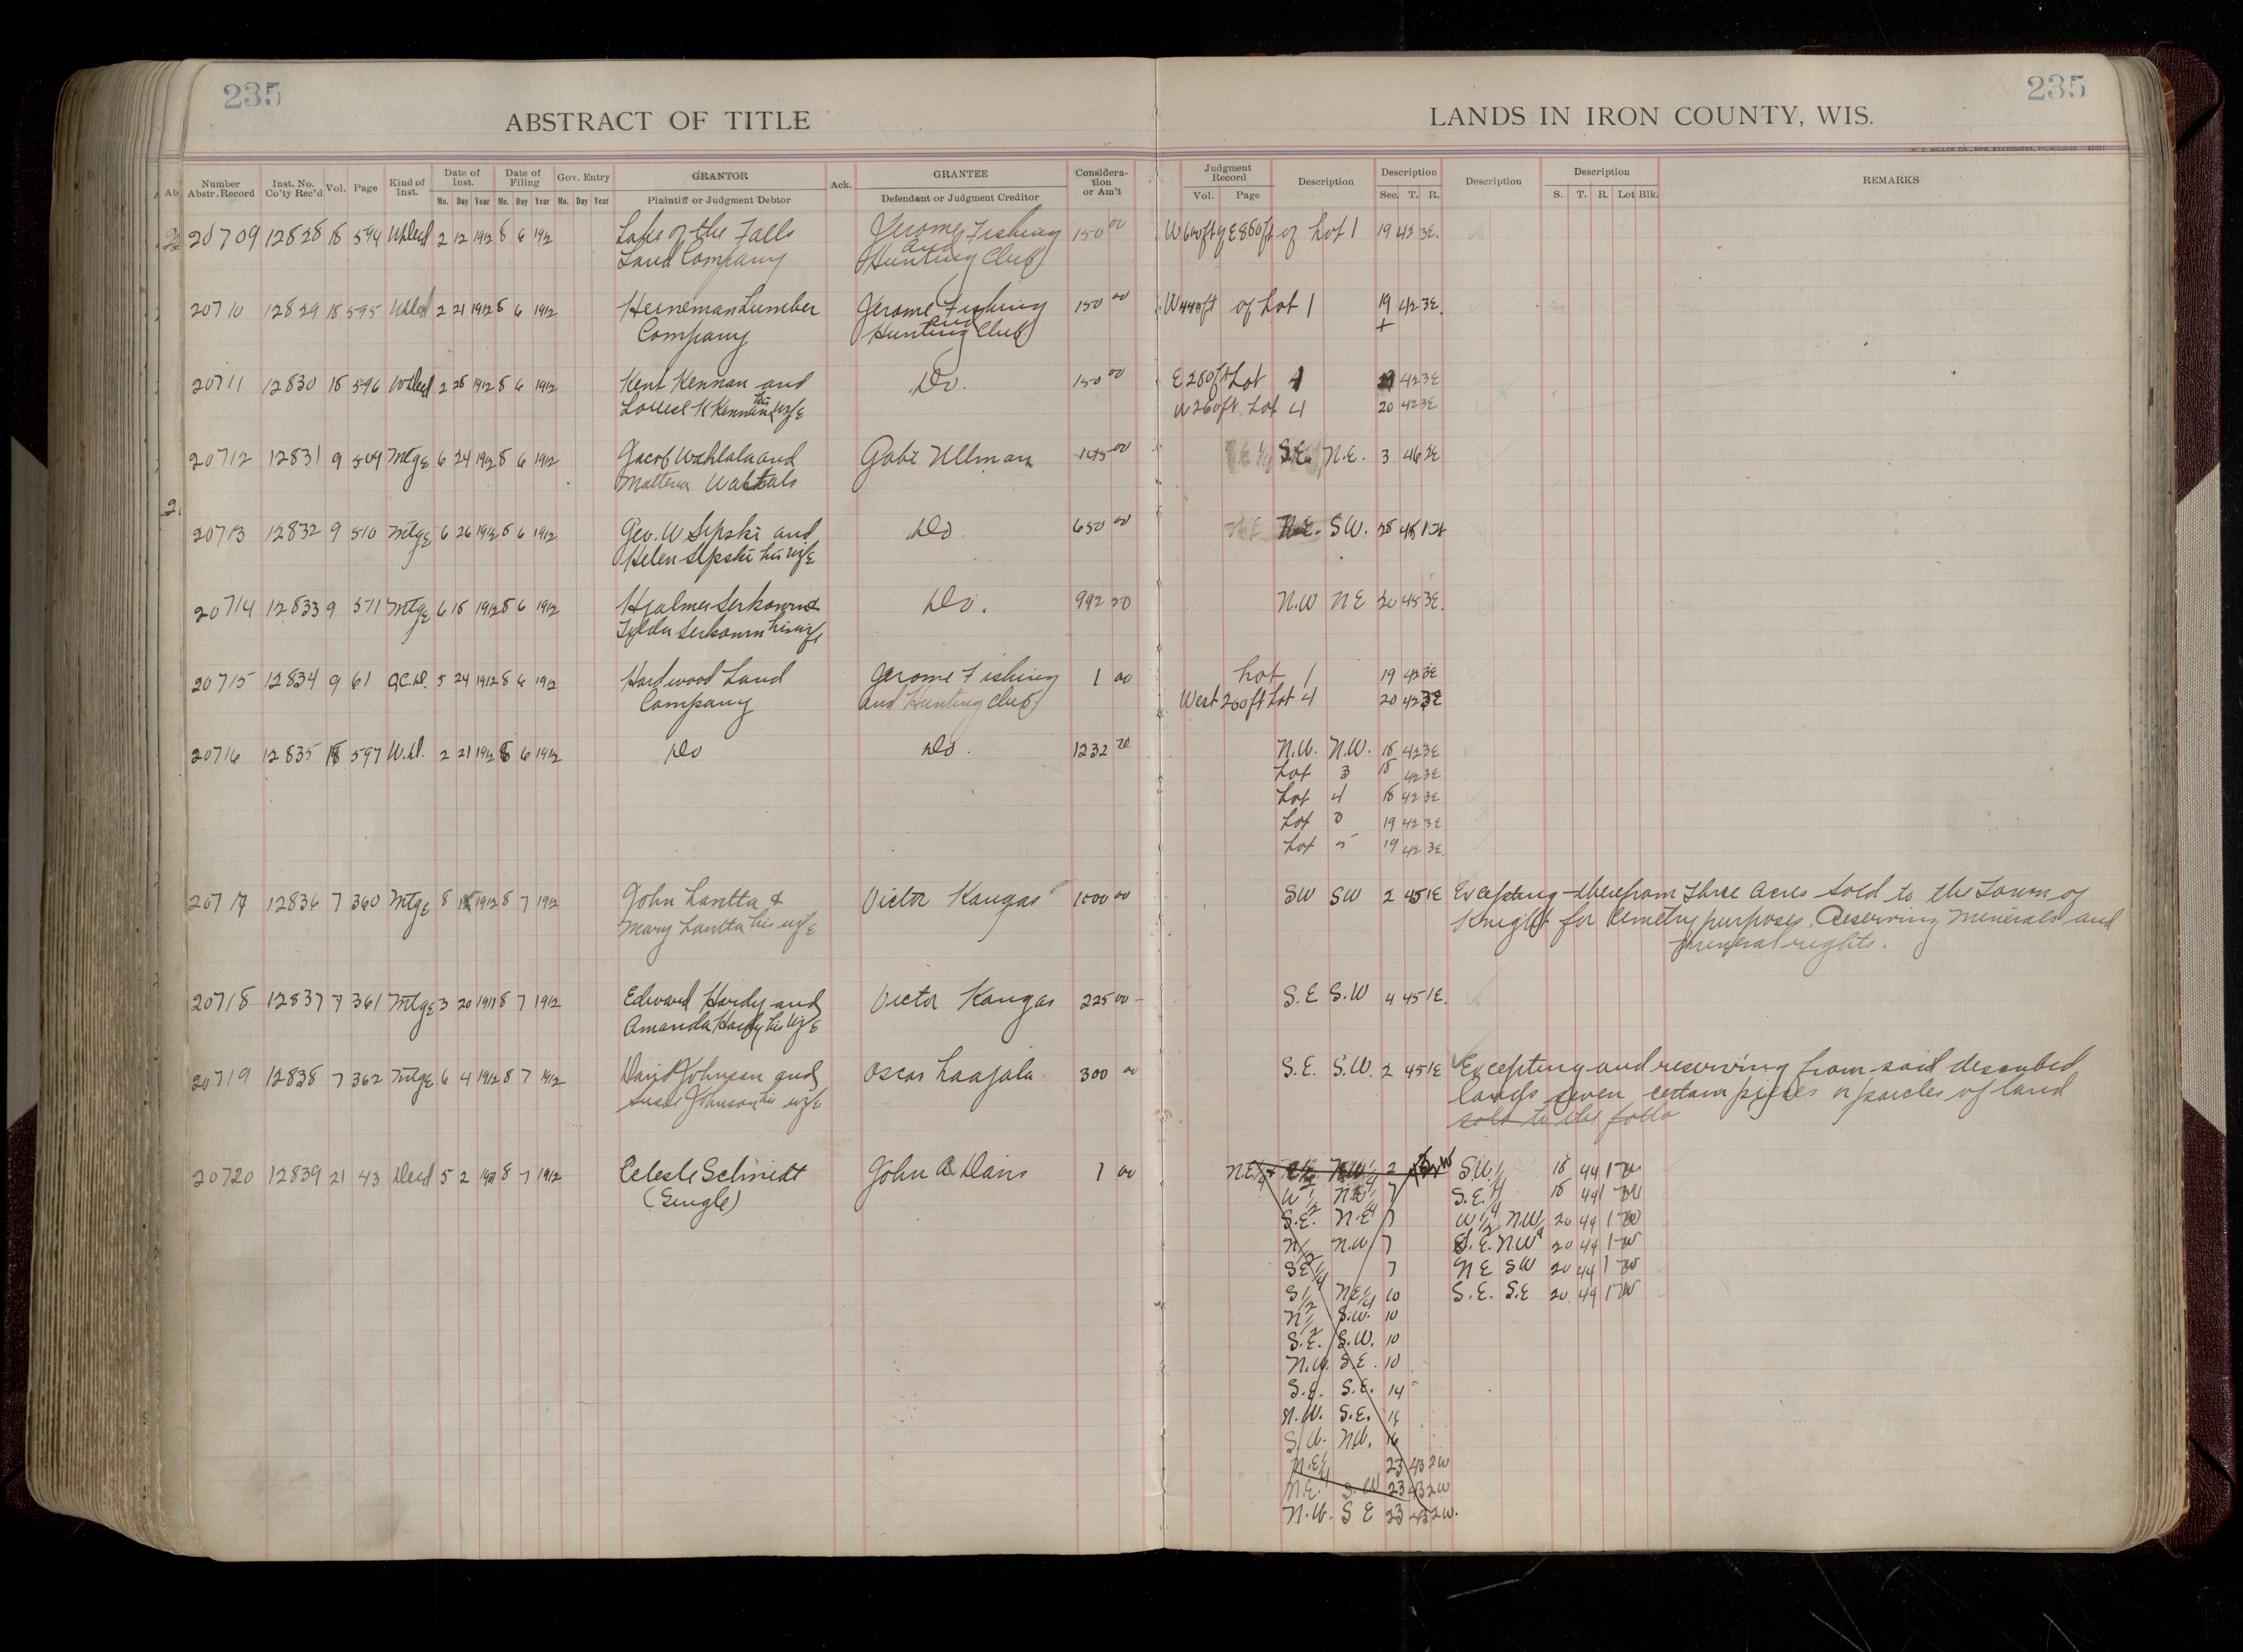 235
235
ABSTRACT OF TITLE
LANDS IN IRON COUNTY, WIS.
H. C. MILLER CO., MFG. STATIONERS, MILWAUKEE
Number Abstr. Record
Inst. No. Co'ty Rec'd
Vol.
Page
Kind of Inst.
Date of Inst.
Date of Filing
Gov. Entry
GRANTOR
Ack.
GRANTEE
Consideration or Am't
Judgment Record
Description
Description
Description
Description
REMARKS
Mo. Day Year Mo. Day Year Mo. Day Year
Plaintiff or Judgment Debtor
Defendant or Judgment Creditor
Vol. Page
Sec. T. R.
S. T. R. Lot Blk.
20709 12828 18 594 W Deed 2 12 1912 8 6 1912 Lake of the Falls Jerome Fishing 150 00 W 600 ft of E 860 ft of Lot 1 19 42 3E.
and
Land Company Hunting Club
20710 12829 18 595 W Deed 2 21 1912 8 6 1912 Heineman Lumber Jerome Fishing 150 00 W 440 ft of Lot 1 19 42 3E.
and
Company Hunting Club
20711 12830 18 596 W Deed 2 28 1912 8 6 1912 Kent Kennan and Do. 150 00 E 280 ft Lot 1 19 42 3E
Louise K Kennan his wife W 260 ft Lot 4 20 42 3E
20712 12831 9 509 Mtge 6 24 1912 8 6 1912 Jacob Wahlala and Gabe Ullman 00 S.E. N.E. 3 46 2E
20713 12832 9 510 Mtge 6 26 1912 8 6 1912 Geo. W Sipski and Do. 650 00 N.E. SW. 28 45
Helen Sipski his wife
20714 12833 9 511 Mtge 6 18 1912 8 6 1912 Do. 992 20 N.W NE 20 45 3E.
his wife
20715 12834 9 61 Q.C.D. 5 24 1912 8 6 1912 Hardwood Land Jerome Fishing 1 00 Lot 1 19 42 3E
Company and Hunting Club West 260 ft Lot 4 20 42 3E
20716 12835 18 597 W.D. 2 21 1912 8 6 1912 Do Do. 1232 70 N.W. N.W. 18 42 3E
Lot 3 18 42 3E
Lot 4 18 42 3E
Lot 3 19 42 3E
Lot 5 19 42 3E.
20717 12836 7 360 Mtge 8 1912 8 7 1912 John Lantta & Victor Kangas 1000 00 SW SW 2 45 1E Excepting therefrom three acres sold to the Town of
Mary Lantta his wife Knight for Cemetry purposes. Reserving minerals and
mineral rights.
20718 12837 7 361 Mtge 3 20 1911 8 7 1912 Edward Hardy and Victor Kangas 225 00 S.E S.W 4 45 1E.
Amanda Hardy his wife
20719 12838 7 362 Mtge 6 4 1912 8 7 1912 David Johnson and Oscar Laajala 300 00 S.E. S.W. 2 45 1E Excepting and reserving from said described
Johnson his wife lands seven certain pieces or parcles of land
sold to the follo
20720 12839 21 43 Deed 5 2 8 7 1912 Celeste Schmidt John A Davis 1 00 N.E.1/4 2 S.W.1/4 18 44 1 W
(Single) W 1/2 N.E.1/4 7 S.E.1/4 18 44 1 W
S.E. N.E. 7 W 1/2 N.W.1/4 20 44 1 W
N 1/2 N.W. 7 S.E. N.W. 20 44 1 W
S.E. 1/4 7 N E S W 20 44 1 W
S 1/2 N.E.1/4 10 S.E. S.E 20 44 1 W
N 1/2 S.W. 10
S.E. S.W. 10
N.W. S.E. 10
S.E. S.E. 14
N.W. S.E.
S.W. N.W. 16
N.E. 1/4 23 43 2W
N.E. S.W 23 43 2W
N.W. S E 23 43 2W.